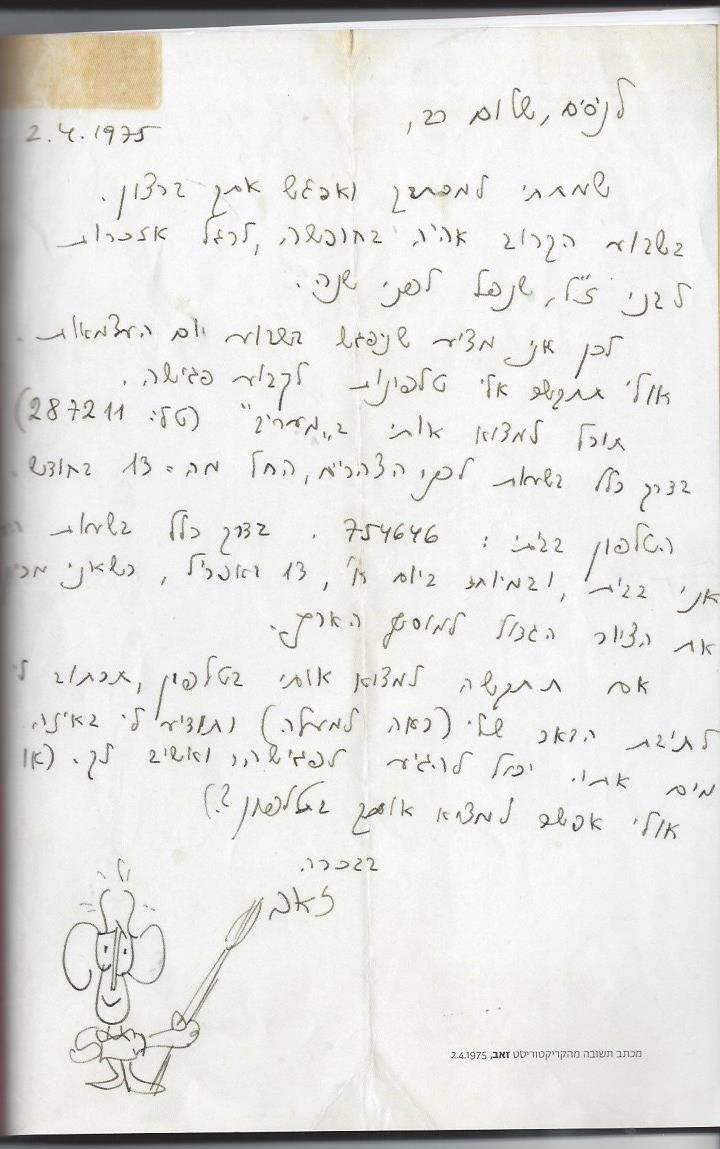 לניסים, שלום רב,
2.4.1975
שמחתי למכתבך ואפגש אתך ברצון.
בשבוע הקרוב אהיה בחופשה, לרגל אזכרות
לבני ז"ל, שנפל לפני שנה.
לכן אני מציע שניפגש בשבוע יום העצמאות.
אולי תתקשר אלי טלפונית לקבוע פגישה.
תוכל למצוא אותי ב"מעריב" (טל: 287211)
בדרך כלל בשעות לפני הצהרים, החל מה-13 בחודש.
הטלפון בביתי: 754646. בדרך כלל בשעות
אני בבית, ובמיוחד ביום א', 13 באפריל, כשאני
את הציור הגדול למוסף הארץ.
אם תתקשה למצוא אותי בטלפון, תכתוב לי
לתיבת הדאר שלי (ראה למעלה) ותודיע לי באיזה
מים אתה יכול להגיע לפגישה ואשיב לך. (או
אולי אפשר למצוא אותך בטלפון?)
בברכה
זאב
מכתב תשובה מהקריקטוריסט זאב, 2.4.1975